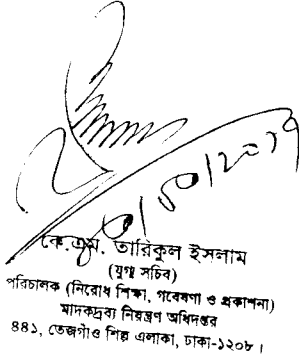 কে.এম. তারিকুল ইসলাম
(যুগ্ম সচিব)
পরিচালক (নিরোধ শিক্ষা, গবেষণা ও প্রকাশনা)
মাদকদ্রব্য নিয়ন্ত্রণ অধিদপ্তর
৪৪১, তেজগাঁও শিল্প এলাকা, ঢাকা-১২০৮।